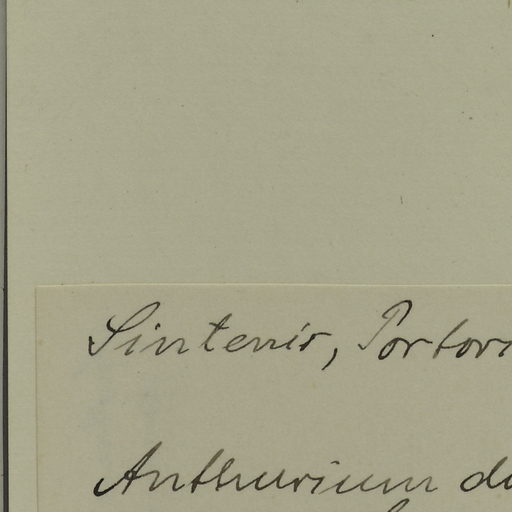 Sintenis, Portori
Anthurium do